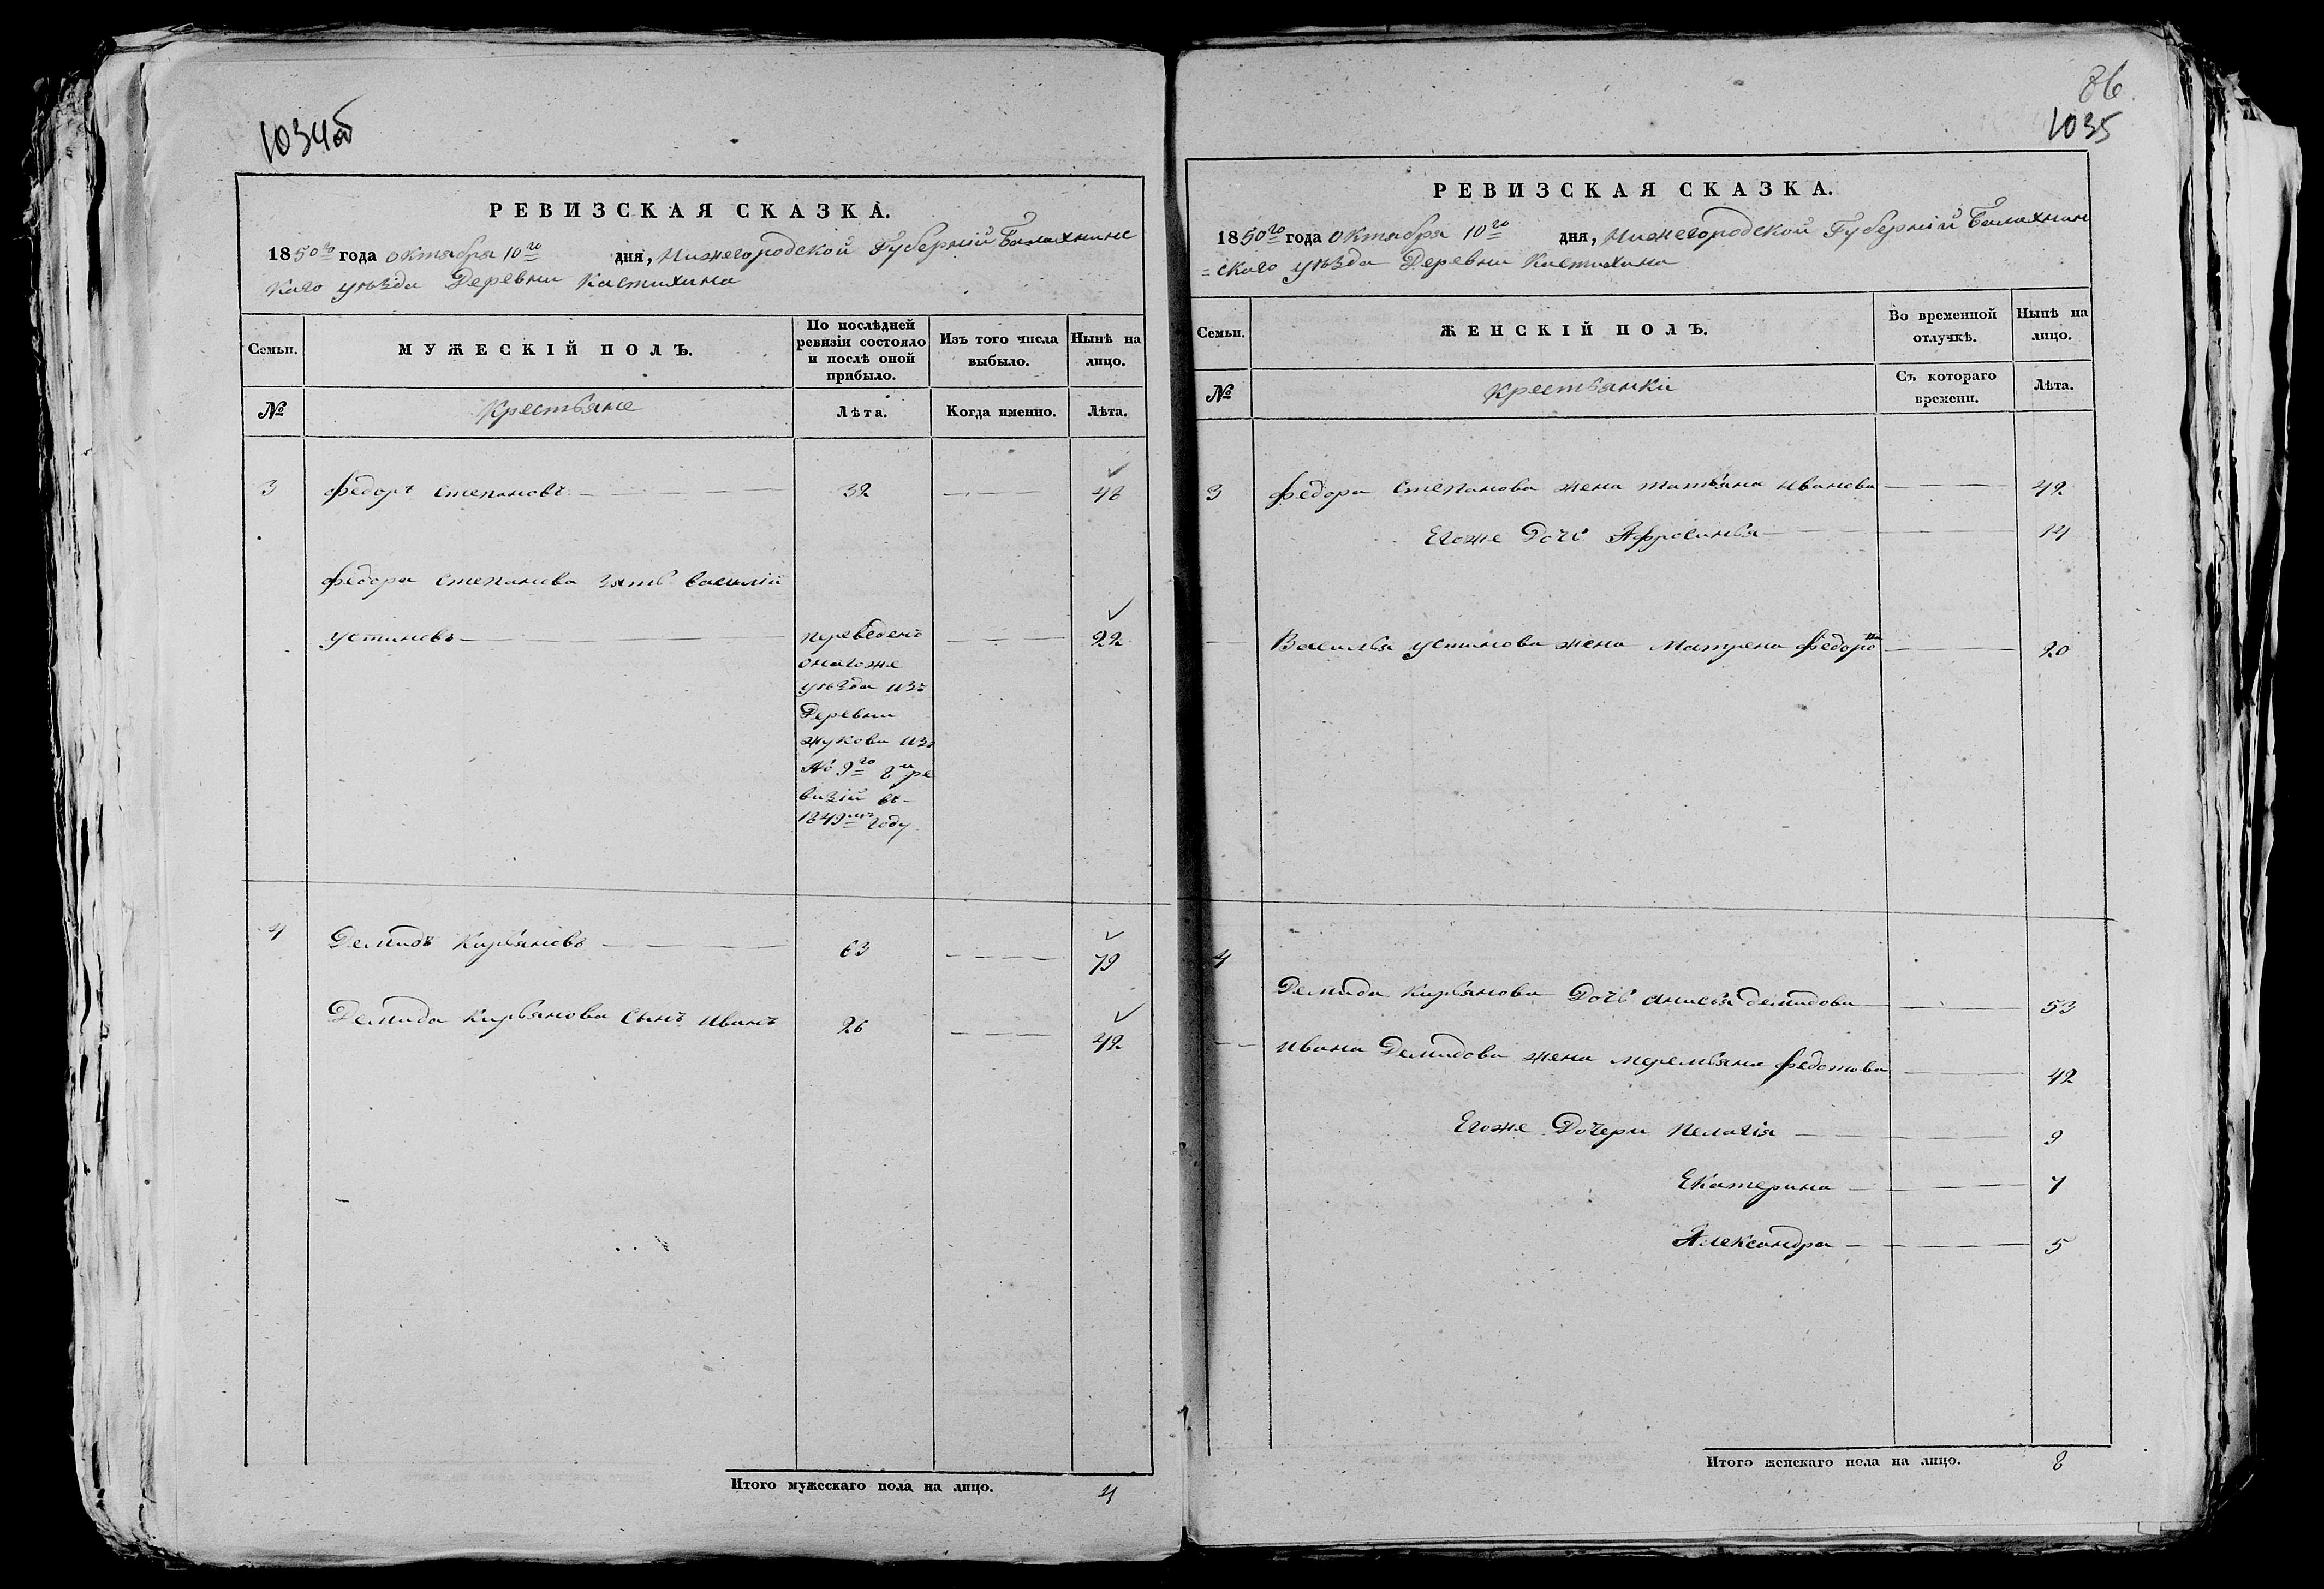 1034об
РЕВИЗСКАЯ СКАЗКА.
1850го года октября 10го дня, Нижегородской Губерній Балахнинс
каго уѣзда Деревни Кастихина
Семьи.
МУЖЕСКІЙ ПОЛЪ.
По послѣдней
ревизіи состояло
и послѣ оной
прибыло.
Изъ того числа
выбыло.
Нынѣ на
лицо.
№
Крестьяне
Лѣта.
Когда именно.
Лѣта.
3 Федоръ Степановъ 32 48
Федора Степанова зять Василій
Устиновъ переведенъ 22
онагоже
уѣзда изъ
Деревни
Жукова изъ
№ 9го 8й ре
визій въ
1849мъ году
4 Демидъ Кирьяновъ 63 79
Демида Кирьянова сынъ Иванъ 26 42
Итого мужескаго пола на лицо. 4
86
1035
РЕВИЗСКАЯ СКАЗКА.
1850го года октября 10го дня, Нижегородской Губерній Балахнин
=скаго уѣзда Деревни Кастихина
Семьи.
ЖЕНСКІЙ ПОЛЪ.
Во временной
отлучкѣ.
Нынѣ на
лицо.
№
Крестьянки
Съ котораго
времени.
Лѣта.
3 Федора Степанова жена Татьяна Иванова 42
Егоже Дочь Афросинья 14
Василья Устинова жена Матрена Федорова 20
4
Демида Кирьянова Дочь Анисья Демидова 53
Ивана Демидова жена Меремьяна Федотова 42
Егоже Дочери Пелагія 9
Екатерина 7
Александра 5
Итого женскаго пола на лицо. 8